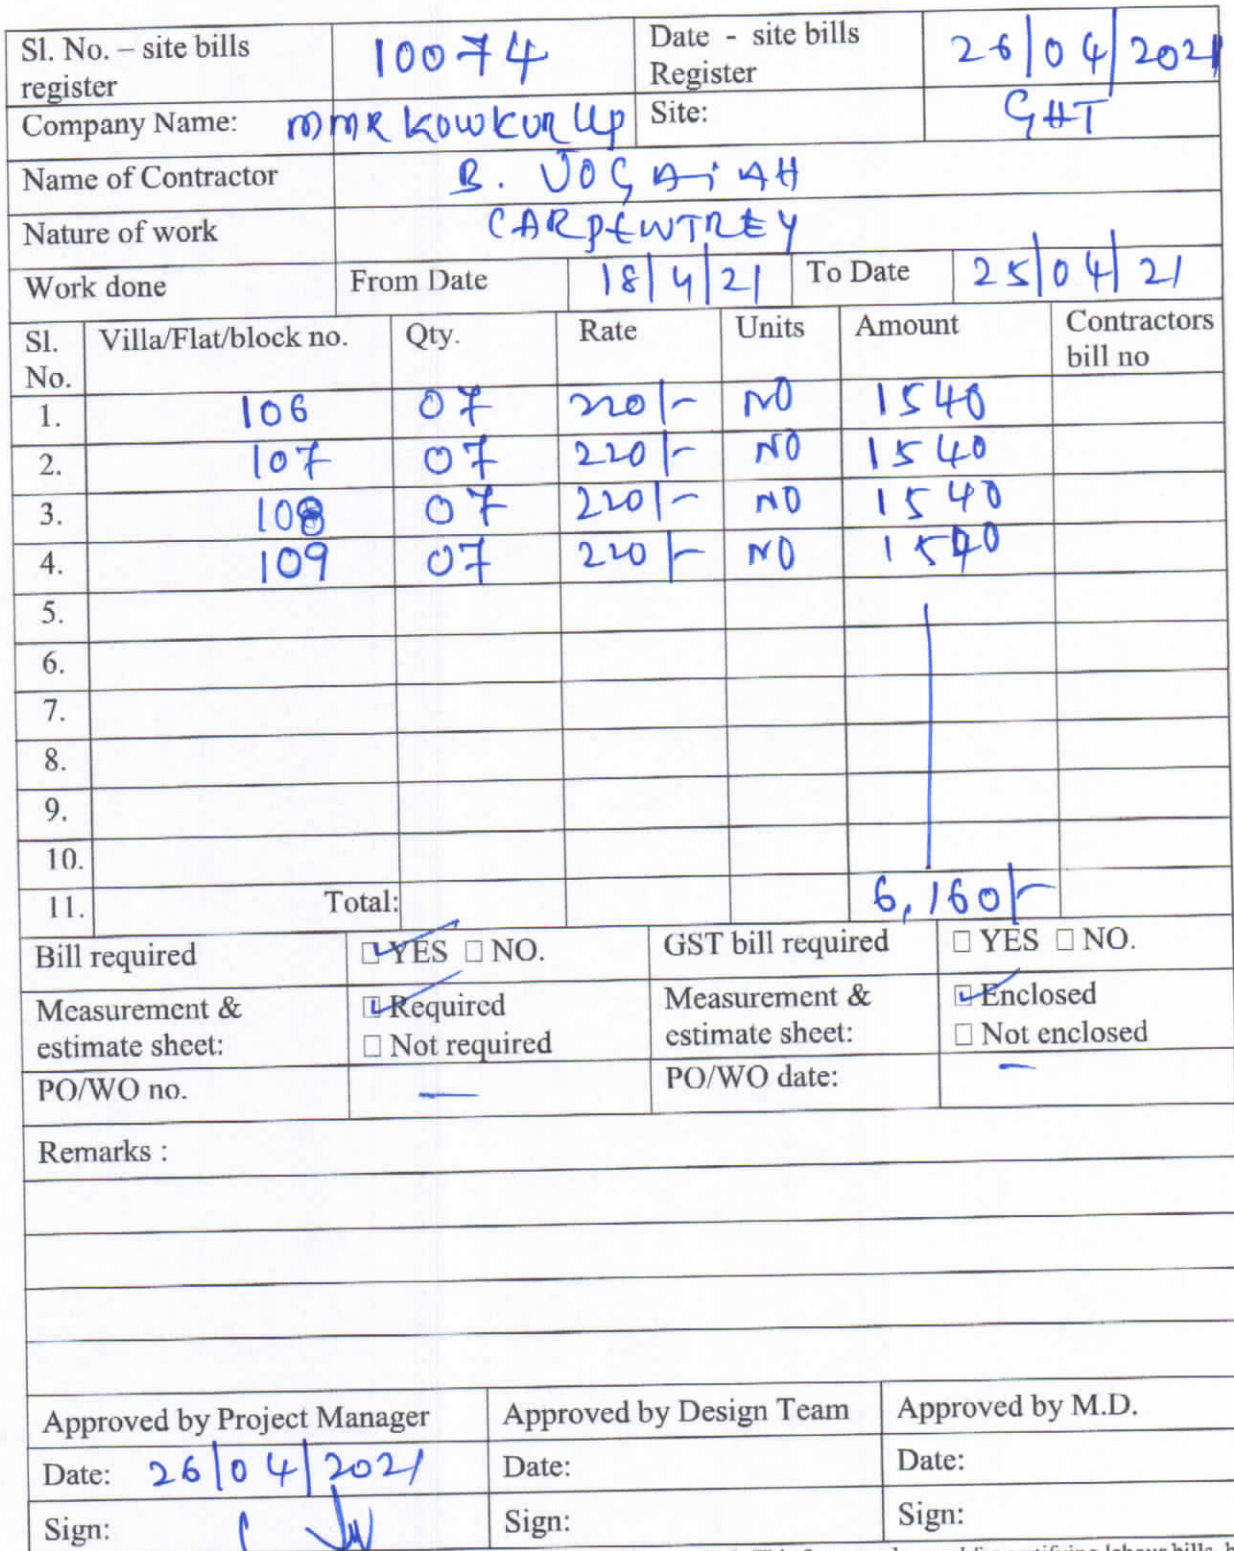 Sl. No. – site bills register 10074 Date - site bills Register 26/04/2021
Company Name: MMR KOWKUR LLP Site: GHT
Name of Contractor B. JOGAIAH
Nature of work CARPENTREY
Work done From Date 18/4/21 To Date 25/04/21
Sl. No. Villa/Flat/block no. Qty. Rate Units Amount Contractors bill no
1. 106 07 220/- NO 1540
2. 107 07 220/- NO 1540
3. 108 07 220/- NO 1540
4. 109 07 220/- NO 1540
5.
6.
7.
8.
9.
10.
11. Total: 6,160/-
Bill required ☑ YES ☐ NO. GST bill required ☐ YES ☐ NO.
Measurement & estimate sheet: ☑ Required ☐ Not required Measurement & estimate sheet: ☑ Enclosed ☐ Not enclosed
PO/WO no. — PO/WO date: —
Remarks :
Approved by Project Manager Approved by Design Team Approved by M.D.
Date: 26/04/2021 Date: Date:
Sign: Sign: Sign: